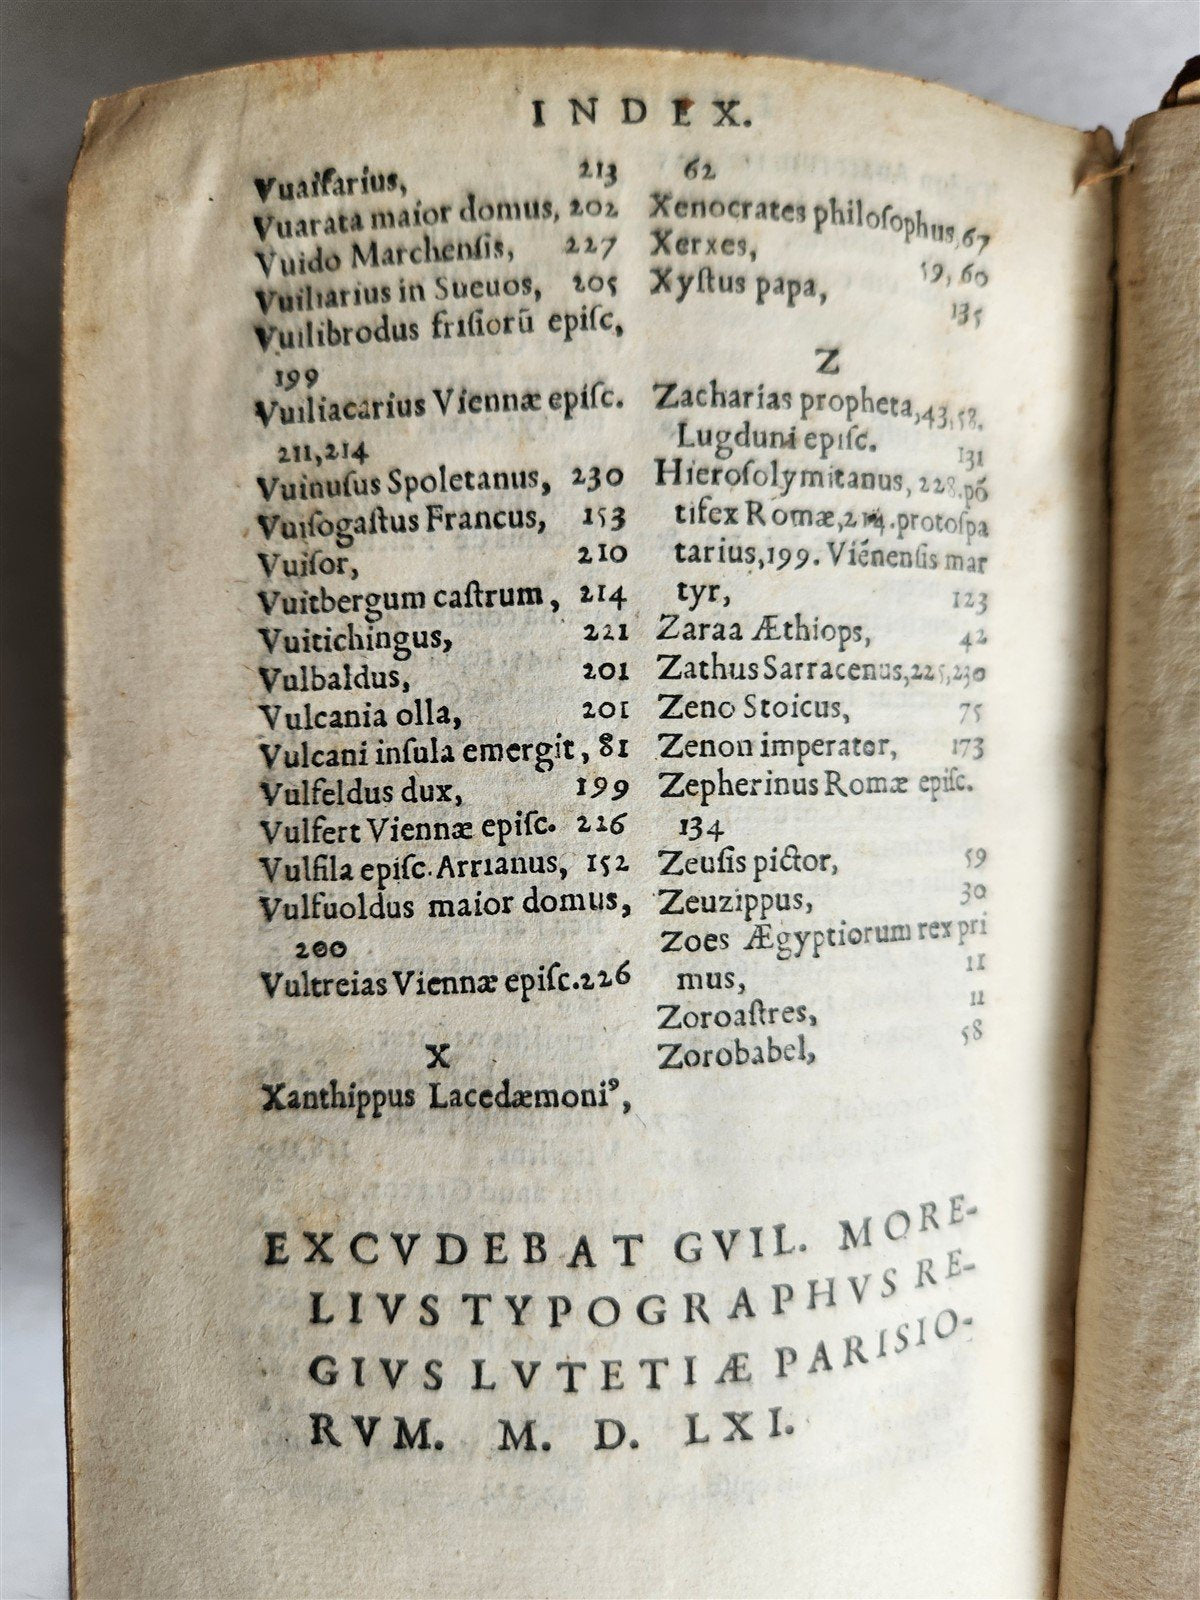 INDEX.
Vuaifarius, 213
Vuarata maior domus, 202
Vuido Marchensis, 227
Vuiliarius in Sueuos, 205
Vuilibrodus frisiorū episc,
199
Vuiliacarius Viennæ episc.
211,214
Vuinusus Spoletanus, 230
Vuisogastus Francus, 153
Vuisor, 210
Vuitbergum castrum, 214
Vuitichingus, 221
Vulbaldus, 201
Vulcania olla, 201
Vulcani insula emergit, 81
Vulfeldus dux, 199
Vulfert Viennæ episc. 226
Vulfila episc. Arrianus, 152
Vulfuoldus maior domus,
200
Vultreias Viennæ episc.226
X
Xanthippus Lacedæmoniꝰ,
62
Xenocrates philosophus,67
Xerxes, 59, 60
Xystus papa, 135
Z
Zacharias propheta,43,58.
Lugduni episc. 131
Hierosolymitanus, 228.pō
tifex Romæ,214.protospa
tarius,199. Viēnensis mar
tyr, 123
Zaraa Æthiops, 42
Zathus Sarracenus,225,230
Zeno Stoicus, 75
Zenon imperator, 173
Zepherinus Romæ episc.
134
Zeusis pictor, 59
Zeuzippus, 30
Zoes Ægyptiorum rex pri
mus, 11
Zoroastres, 11
Zorobabel, 58
EXCVDEBAT GVIL. MORE-
LIVS TYPOGRAPHVS RE-
GIVS LVTETIÆ PARISIO-
RVM. M. D. LXI.